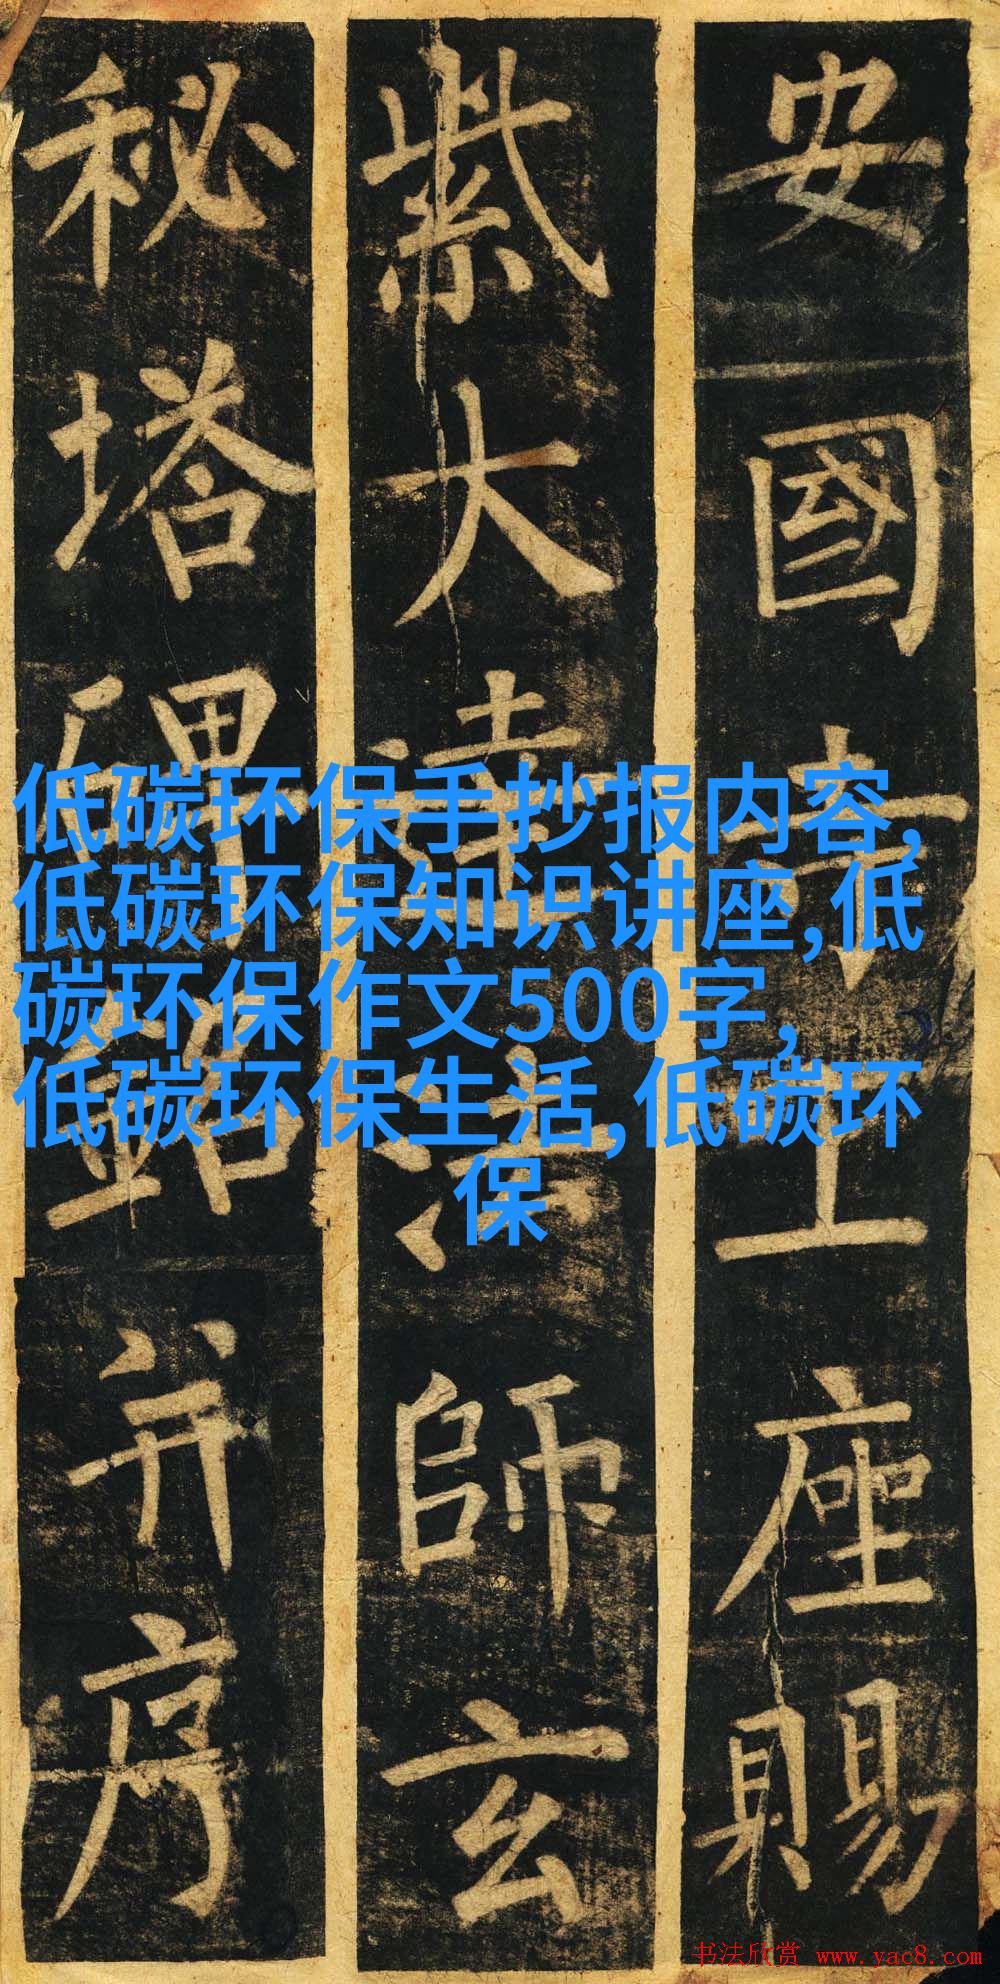 安國寺上座賜
紫大達法師玄
秘塔碑銘并序
低碳环保手抄报内容,
低碳环保知识讲座,低
碳环保作文500字,
低碳环保生活,低碳环
保
书法欣赏 www.yac8.com